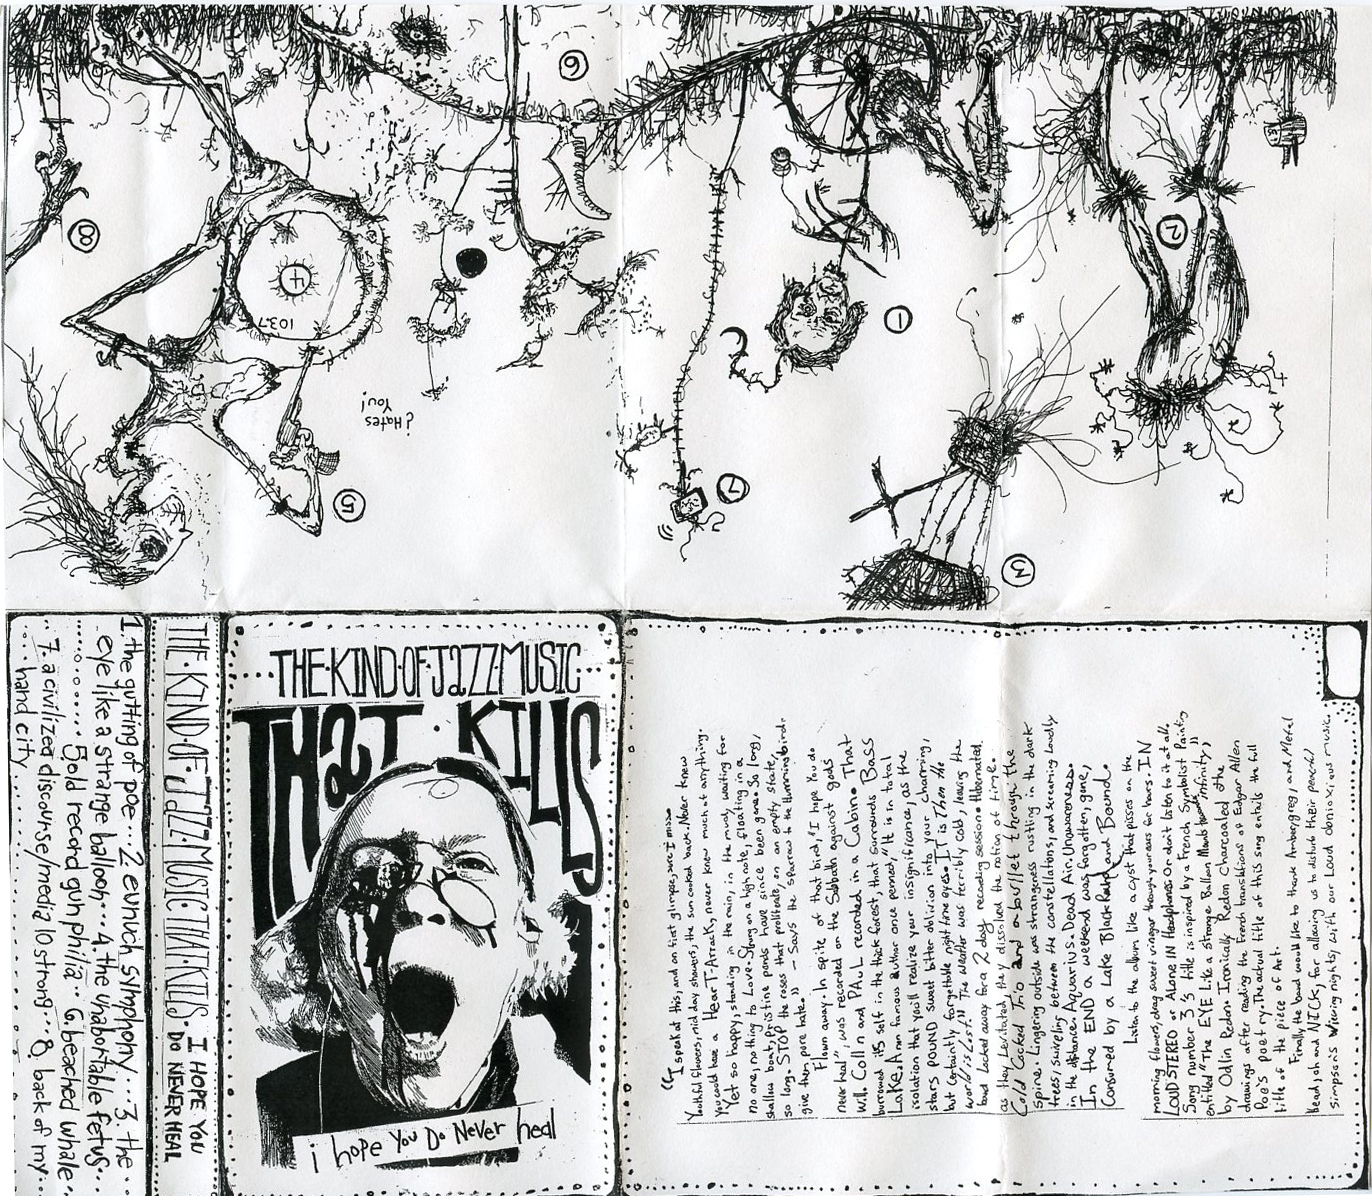 THE·KIND·OF·JAZZ·MUSIC
THAT·KILLS
i hope You Do Never heal
THE·KIND·OF·JAZZ·MUSIC·THAT·KILLS· I HOPE YOU
DO NEVER HEAL
1. the gutting of poe... 2 eunuch symphony... 3. the
eye like a strange balloon... 4. the unabortable fetus...
5 gold record gun philia... 6. beached whale...
7. a civilized discourse/media 10 strong... 8, back of my...
hand city
"I speak at this, and on first glimpse, sure I miss
Youthful flowers, mid day showers, the sun cooked back. Never knew
you could have a HearT-Arrack, never knew much at anything.
Yet so happy, standing in the rain, in the mud, waiting for
no one, no thing to Love. Strung on a high note, floating in a
shallow boat, pristine ponds have since been gone. So long,
so long. STOP the roses that pollinate, on an empty state,
give them pore hate." — Says the Sparrow to the Hummingbird.
Flown away. In spite of that bird, "I hope You do
never heal" was recorded on the Sabbath against gods
will. Collin and PAUL recorded in a Cabin. That
burrowed its self in the thick forest, that Surrounds Bass
Lake. As a non famous author once penned, "It is in total
isolation that you'll realize your insignificance, as the
stars POUND sweet bitter oblivion into your charming,
but certaintly forgettable night time eyes. IT is Then the
world is Lost." The weather was terribly cold, leaving the
band Locked away for a 2 day recording session. Hibernated
as they Levitated, they distilled the notion of time.
Cold Cocked Trio and a bullet through the
spine. Lingering outside was strangeness rustling in the dark
trees, swirling between the constellations, and screaming loudly
in the distance. Aquarius. Dead Air. Unawareness.
In the END a weekend was forgotten, gone,
Consumed by a Lake Black and Bound.
Listen to the album like a cyst that pisses on the
morning flowers, drag sweet vinegar through your ears for hours. IN
LOUD STEREO or Alone IN Headphones. Or don't listen to it at all.
Song number 3's title is inspired by a French Symbolist Painting
entitled "The EYE Like a strange Balloon Mounts Towards Infinity,"
by Odilon Redon. Ironically Redon Charcoaled the
drawings after reading the French translations of Edgar Allen
Poe's poetry. The actual title of this song entails the full
title of the piece of Art.
Finally, the band would like to thank Amburgreg, and Metal
head, oh and NICK, for allowing us to disturb their peaceful
simpsons viewing nights with our Loud obnoxious music.
1
2
3
4
103.7
5
¿Hates
You!
6
7
8